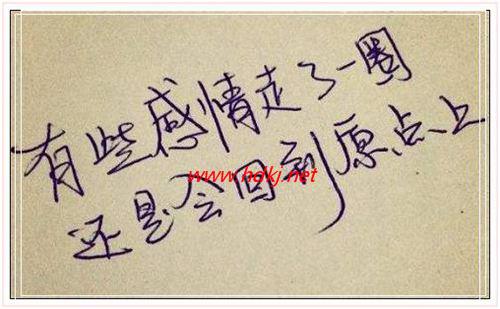 有些感情走了一圈
还是会回到原点上
www.hdkj.net